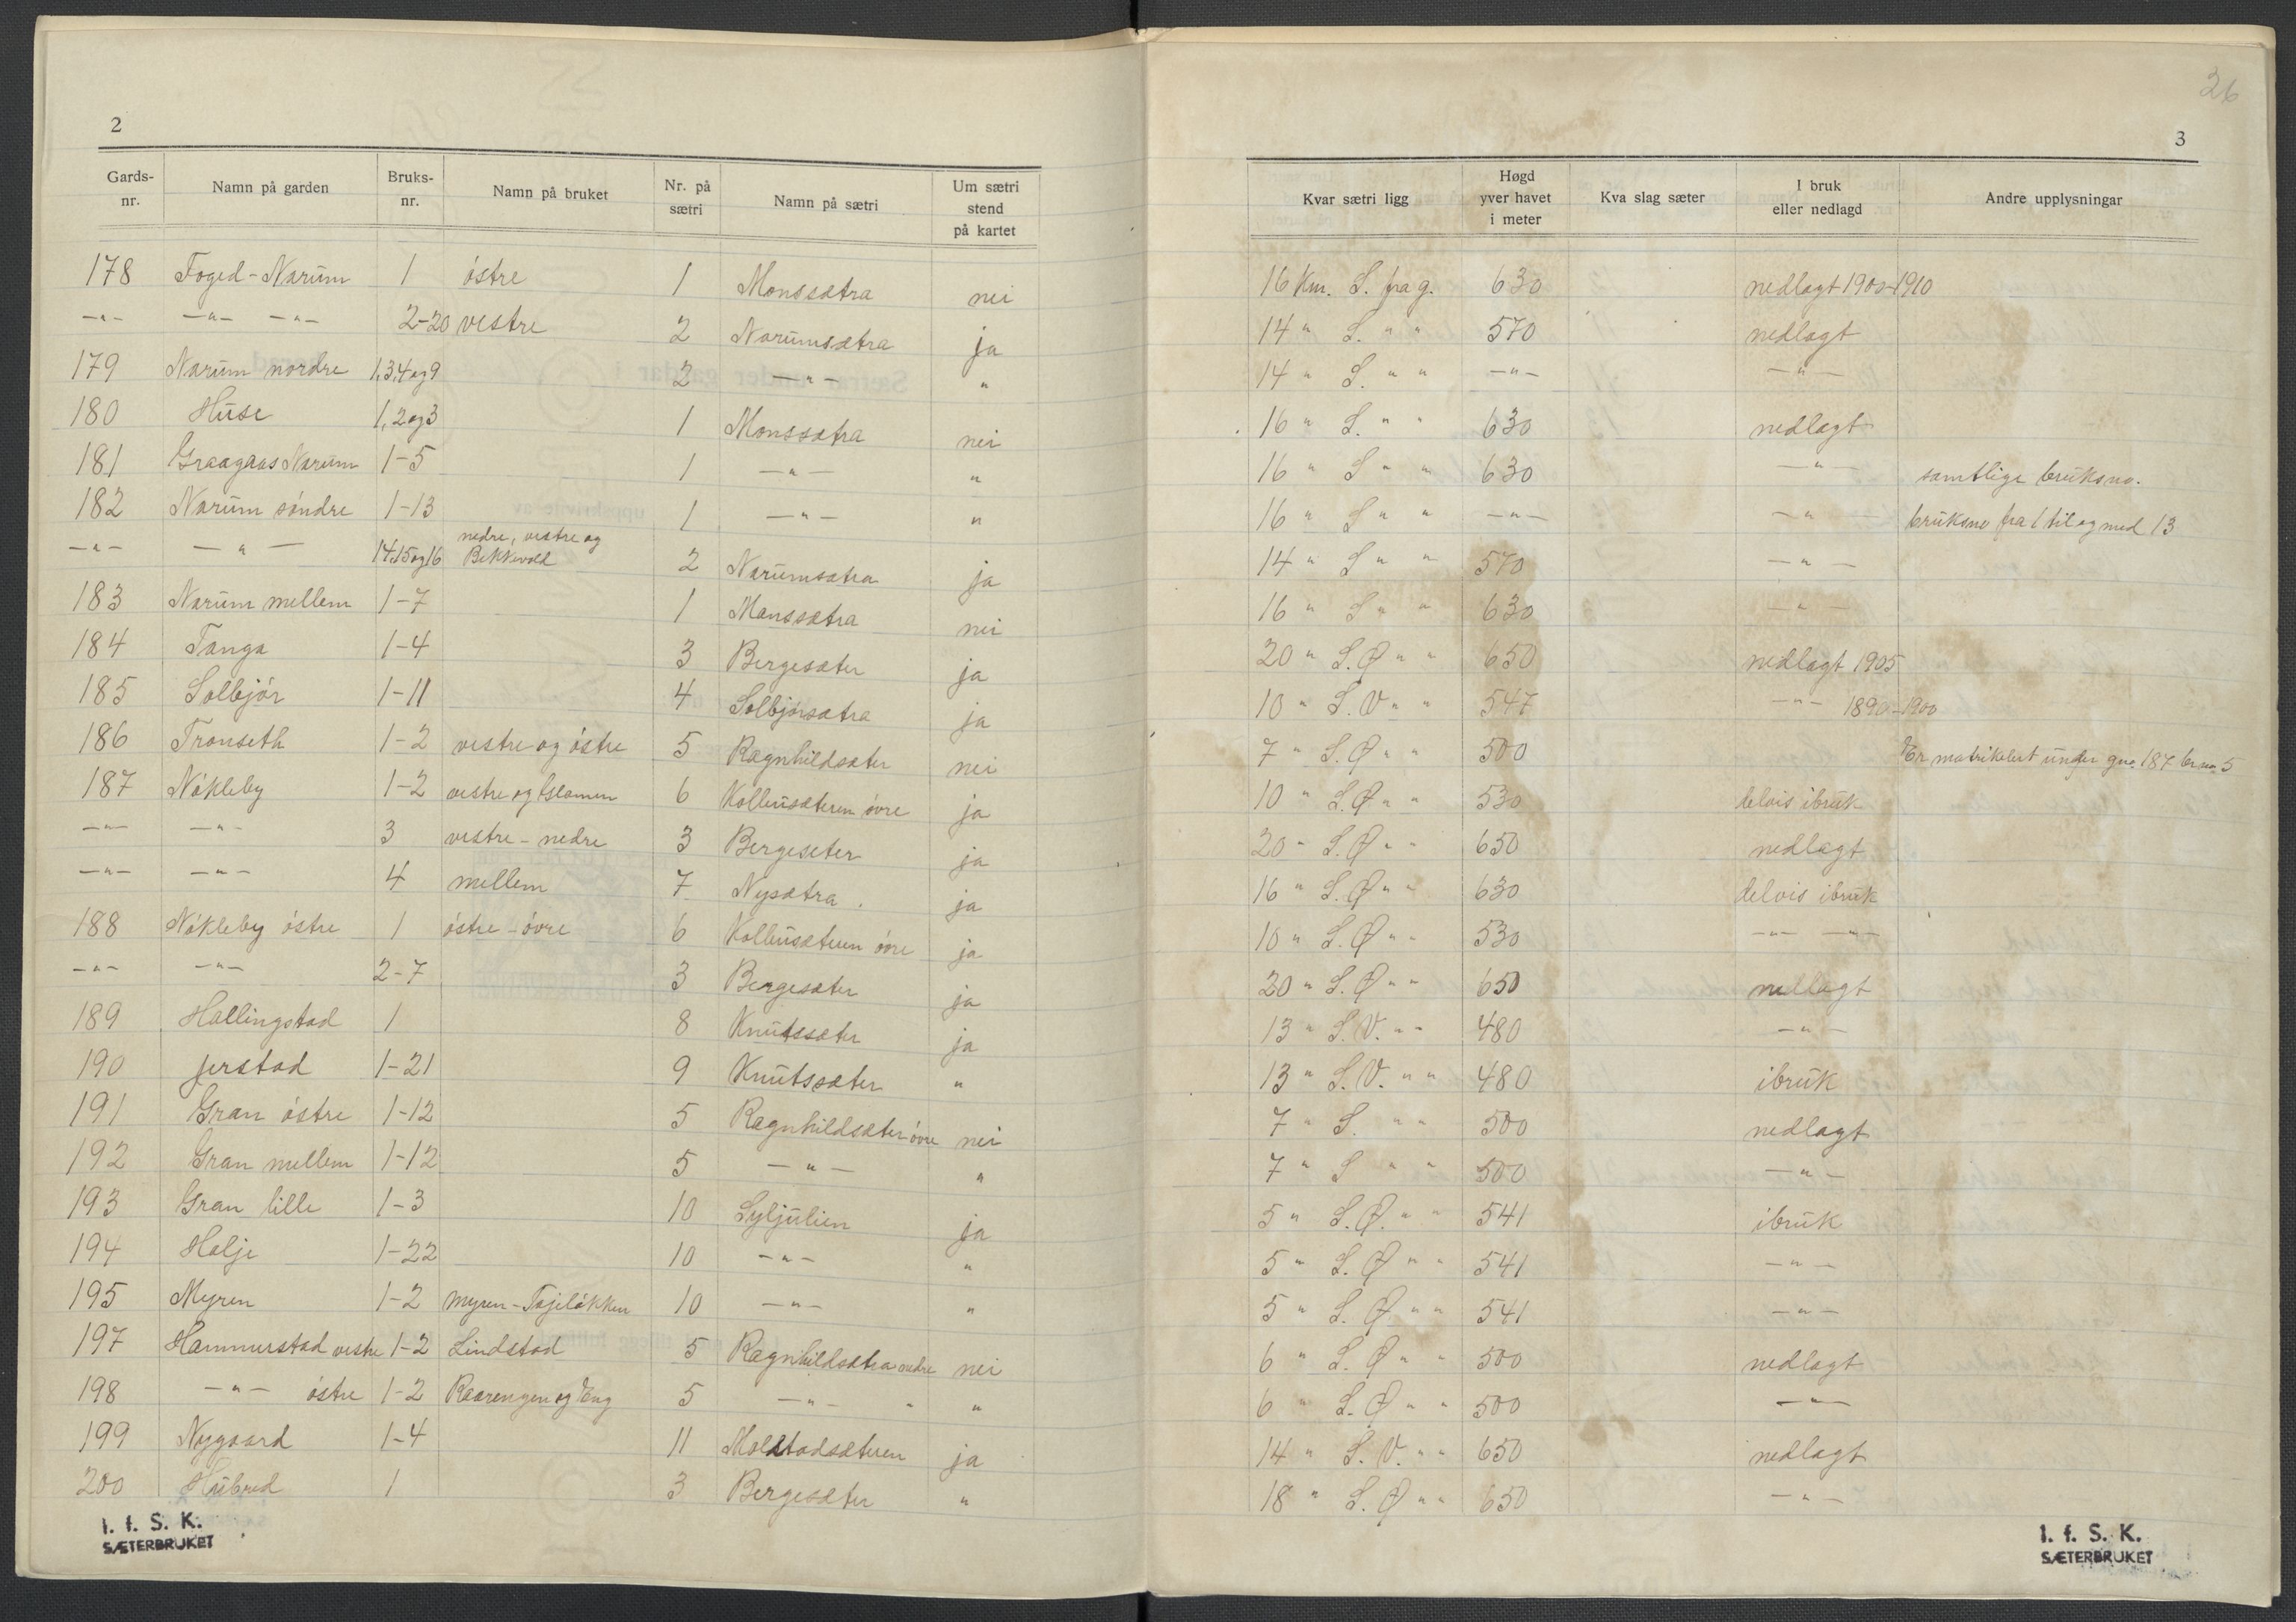 2
Gards-nr. | Namn på garden | Bruks-nr. | Namn på bruket | Nr. på sætri | Namn på sætri | Um sætri stend på kartet
178 | Foged-Narum | 1 | østre | 1 | Monssætra | nei
-"- | -"- -"- | 2-20 | vestre | 2 | Narumsætra | ja
179 | Narum nordre | 1,3,4 og 9 | | 2 | -"- | "
180 | Huse | 1,2 og 3 | | 1 | Monssætra | nei
181 | Graagaas Narum | 1-5 | | 1 | -"- | "
182 | Narum søndre | 1-13 | | 1 | -"- | "
-"- | -"- | 14,15 og 16 | nedre, vestre og Bekkevold | 2 | Narumsætra | ja
183 | Narum mellem | 1-7 | | 1 | Monssætra | nei
184 | Tanga | 1-4 | | 3 | Bergesæter | ja
185 | Solbjør | 1-11 | | 4 | Solbjørsætra | ja
186 | Tronseth | 1-2 | vestre og østre | 5 | Ragnhildsæter | nei
187 | Nøkleby | 1-2 | vestre og | 6 | Kolleusæteren øvre | ja
-"- | -"- | 3 | vestre - nedre | 3 | Bergeseter | ja
-"- | -"- | 4 | mellem | 7 | Nysætra . | ja
188 | Nøkleby østre | 1 | østre - øvre | 6 | Kolleusæteren øvre | ja
-"- | -"- | 2-7 | | 3 | Bergesæter | ja
189 | Hallingstad | 1 | | 8 | Knutssæter | ja
190 | Jerstad | 1-21 | | 9 | Knutssæter | "
191 | Gran østre | 1-12 | | 5 | Ragnhildsæter øvre | nei
192 | Gran mellem | 1-12 | | 5 | -"- | "
193 | Gran lille | 1-3 | | 10 | Lyljulien | ja
194 | Halje | 1-22 | | 10 | -"- | "
195 | Myren | 1-2 | Myren-Tajeløkken | 10 | -"- | "
197 | Hammerstad vestre | 1-2 | Lindstad | 5 | Ragnhildsætra nedre | nei
198 | -"- østre | 1-2 | Raarengen og Eng | 5 | -"- " | "
199 | Nygaard | 1-4 | | 11 | Molstadsæteren | ja
200 | Hubred | 1 | | 3 | Bergesæter | "
I. f. S. K.
SÆTERBRUKET
26
3
Kvar sætri ligg | Høgd yver havet i meter | Kva slag sæter | I bruk eller nedlagd | Andre upplysningar
16 Km. S. fra g. | 630 | | nedlagt 1900-1910
14 " S. " " | 570 | | nedlagt
14 " S. " " | -"- | | -"-
16 " S. " " | 630 | | nedlagt
16 " S " " | 630 | | -"- | samtlige bruksno.
16 " S " " | -"- | | -"- | bruksno fra 1 til og med 13
14 " S " " | 570 | | -"-
16 " S " " | 630 | | -"-
20 " S.Ø " " | 650 | | nedlagt 1905
10 " S.V " " | 547 | | -"- 1890-1900
7 " S.Ø " " | 500 | | | Er matrikulert under gno. 187 brno. 5
10 " S.Ø " " | 530 | | delvis ibruk
20 " S.Ø " " | 650 | | nedlagt
16 " S.Ø " " | 630 | | delvis ibruk
10 " S.Ø " " | 530 | | -"- -"-
20 " S.Ø " " | 650 | | nedlagt
13 " S.V. " " | 480 | | -"-
13 " S.V. " " | 480 | | ibruk
7 " S. " " | 500 | | nedlagt
7 " S " " | 500 | | -"-
5 " S.Ø. " " | 541 | | ibruk
5 " S.Ø " " | 541 | | -"-
5 " S.Ø " " | 541 | | -"-
6 " S.Ø " " | 500 | | nedlagt
6 " S.Ø " " | 500 | | -"-
14 " S.V. " " | 650 | | nedlagt
18 " S.Ø " " | 650 | | -"-
I. f. S. K.
SÆTERBRUKET